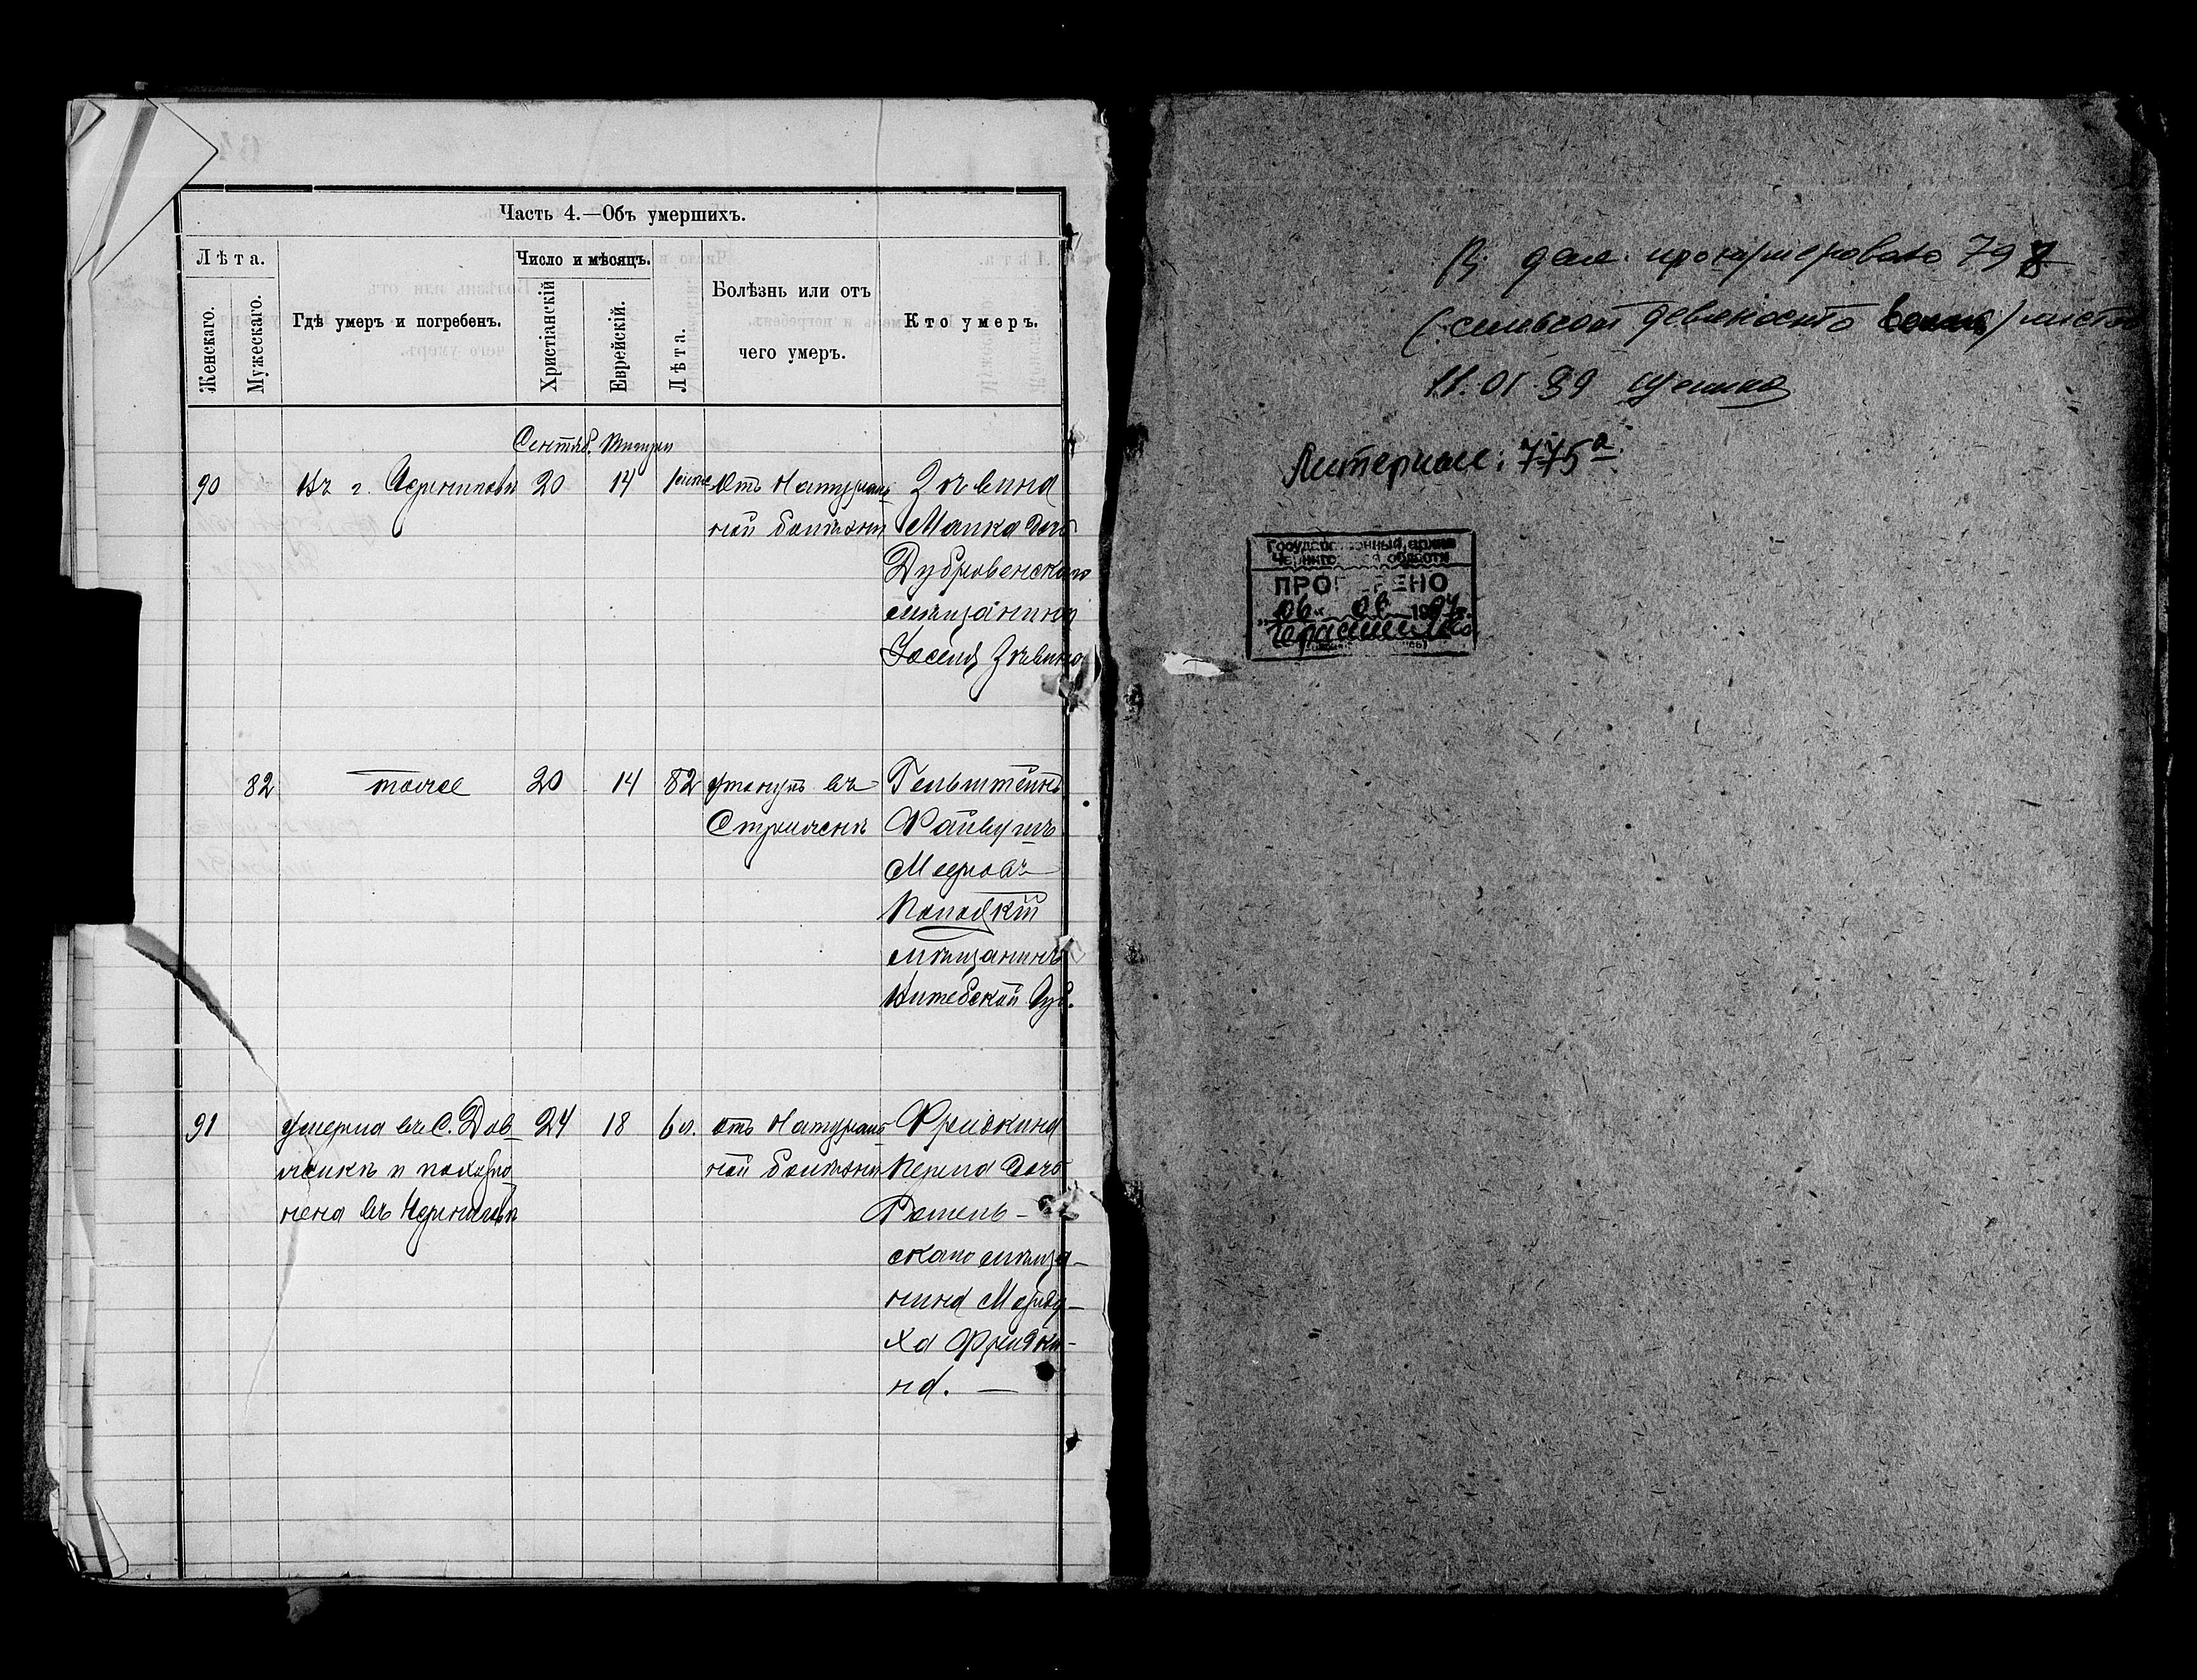 Часть 4.—Объ умершихъ.
Лѣта.
Женскаго.
Мужескаго.
Гдѣ умеръ и погребенъ.
Число и мѣсяцъ.
Христіанскій
Еврейскій.
Лѣта.
Болѣзнь или отъ
чего умеръ.
Кто умеръ.
Сентяб. Тишри
90 Въ г. Черниговѣ 20 14 Отъ Натураль-
ной болѣзни
Маика дочь
Дубровенскаго
мѣщанина
Іоселя
82 тоже 20 14 82 утонулъ въ
Стрижнѣ
Гельштейнъ
Файвушъ
Меровъ
Полоцкій
мѣщанинъ
Витебской Губ.
91 умерла въ С. Дов-
жикѣ и похоро
нена въ Черниговѣ
24 18 6 л. отъ Натураль-
ной болѣзни
Фридкина
Перла дочь
Роменъ-
скаго мѣща-
нина Морду-
ха Фридки-
на. —
В деле пронумеровано 798
(семьсот девяносто восемь) листов
11.01.89
Литерные: 775а
Государственный архив
Черниговской области
ПРОВЕРЕНО